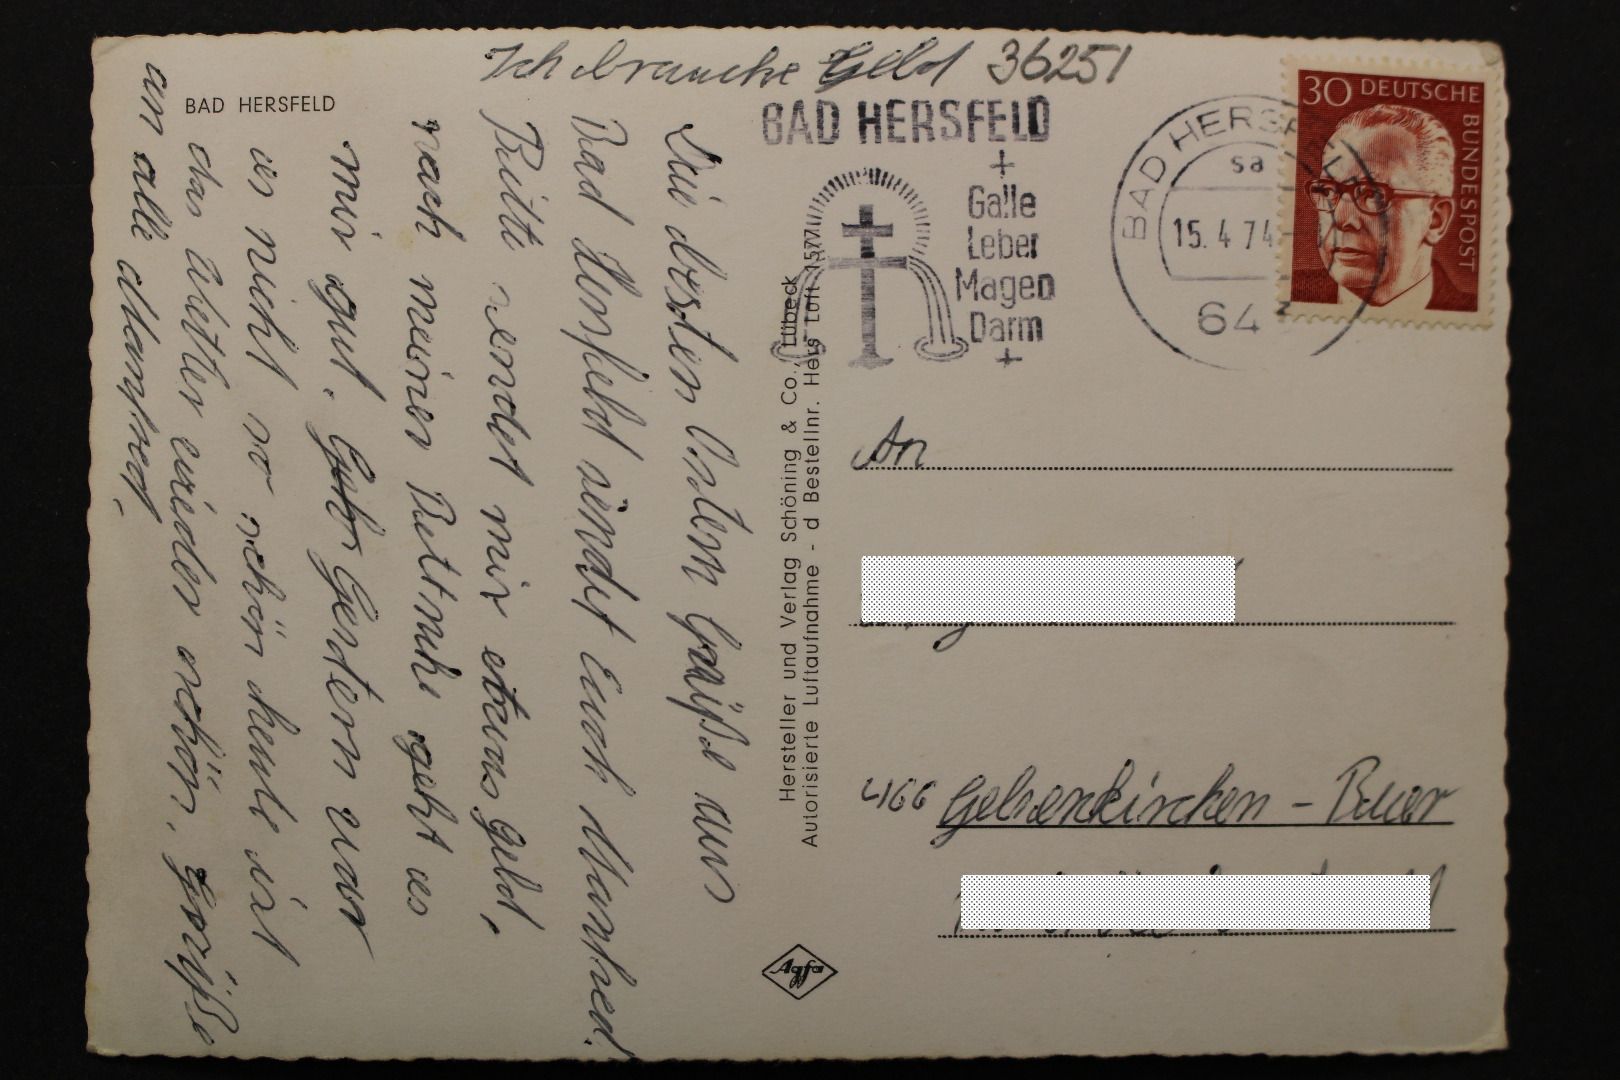 Ich brauche Geld 36251
BAD HERSFELD
Die besten Ostern Grüße aus
Bad Hersfeld sendet Euch Manfred!
Bitte sendet mir etwas Geld,
nach meiner Bettruhe geht es
mir gut. Gestern war
es nicht so schön heute ist
das Wetter wieder schön. Grüße
an alle Manfred.
Hersteller und Verlag Schöning & Co., Lübeck
Autorisierte Luftaufnahme - d Bestellnr. Hers Luft 1577
BAD HERSFELD
+
Galle
Leber
Magen
Darm
+
BAD HERSFELD
sa
15.4.74
64
30 DEUTSCHE BUNDESPOST
An
4166 Gelsenkirchen - Buer
Agfa